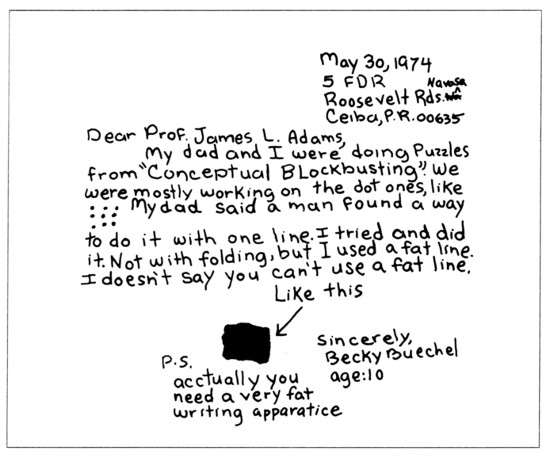 May 30, 1974
5 FDR
Roosevelt Rds.
Ceiba, P.R. 00635
Dear Prof. James L. Adams,
My dad and I were doing Puzzles
from "Conceptual BLockbusting". We
were mostly working on the dot ones, like
My dad said a man found a way
to do it with one line. I tried and did
it. Not with folding, but I used a fat line.
I doesn't say you can't use a fat line.
Like this
sincerely,
Becky Buechel
age:10
P.S.
acctually you
need a very fat
writing apparatice